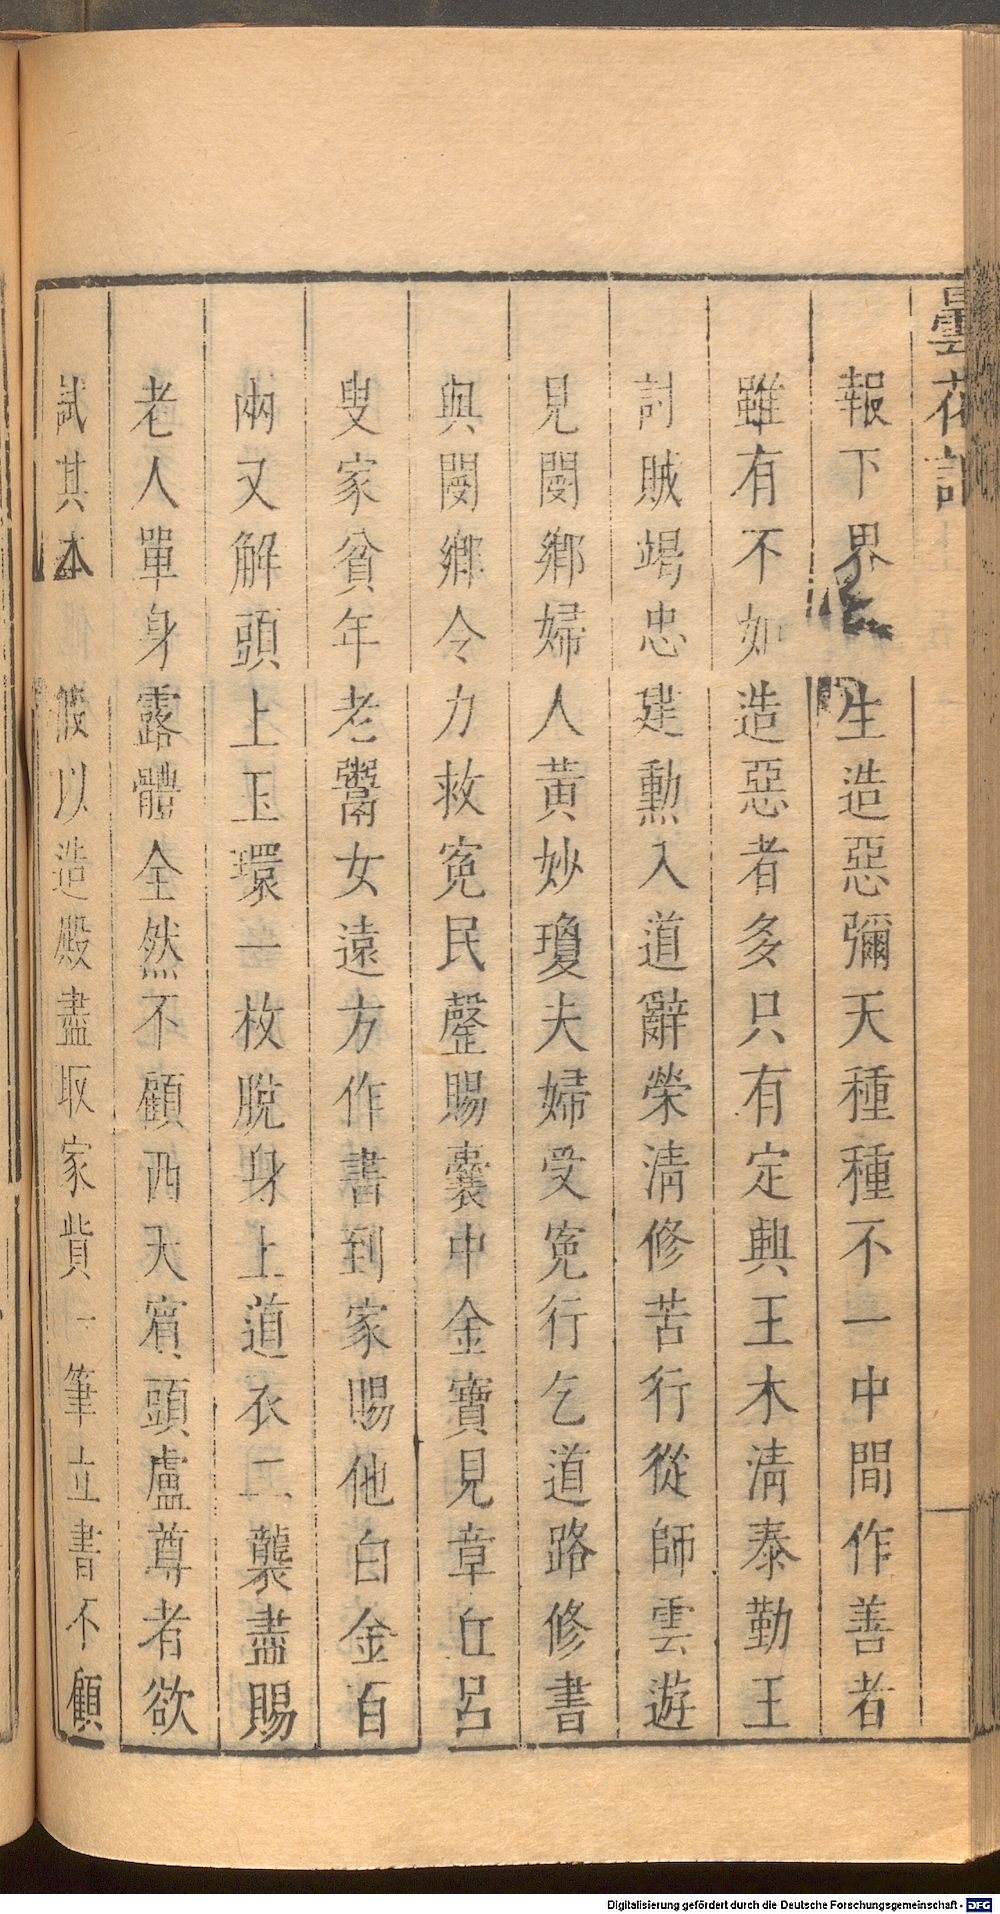 曇花記
報下界 生造惡彌天種種不一中間作善者
雖有不如造惡者多只有定興王木清泰勤王
討賊竭忠建勲入道辭榮淸修苦行從師雲遊
見閿鄉婦人黃妙瓊夫婦受寃行乞道路修書
與閿鄉令力救寃民罄賜囊中金寶見章丘呂
叟家貧年老鬻女遠方作書到家賜他白金百
兩又解頭上玉環一枚脫身上道衣二襲盡賜
老人單身露體全然不顧西天賓頭盧尊者欲
試其 假以造殿盡取家貲一筆立書不顧
Digitalisierung gefördert durch die Deutsche Forschungsgemeinschaft - DFG